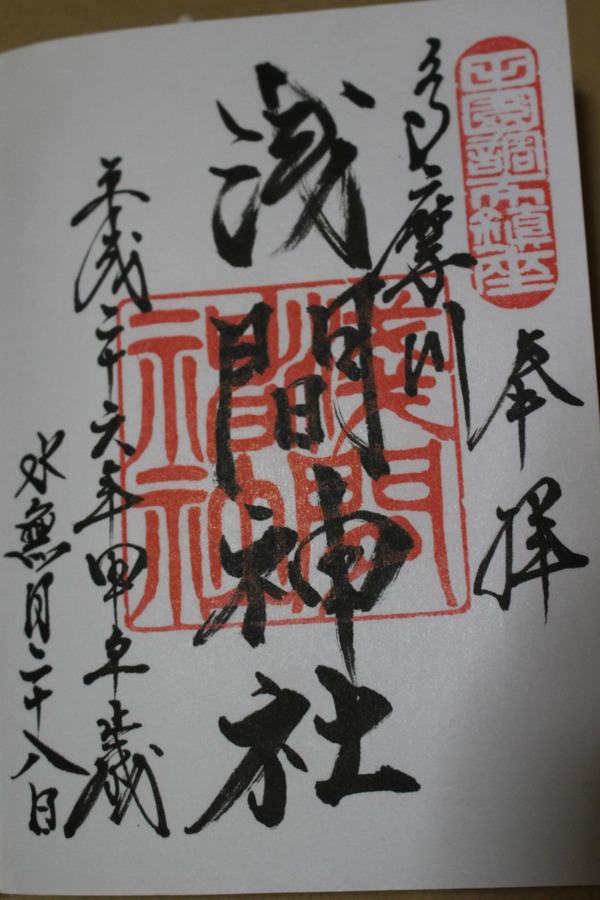 田園調布鎮座
奉拝
多摩川
浅間神社
淺間
神社
平成二十六年甲午歳
水無月二十八日